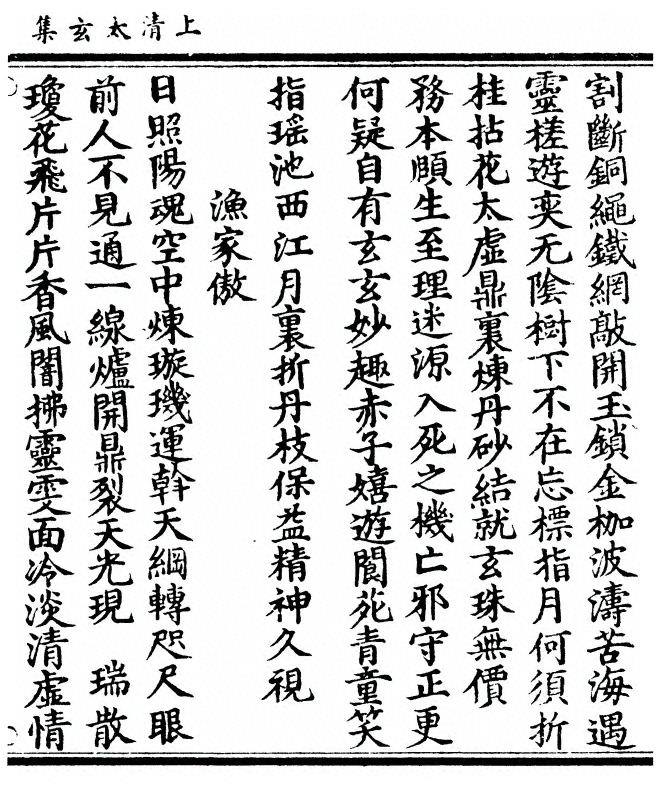 上清太玄集
割斷銅繩鐵網敲開玉鎖金枷波濤苦海遇
靈槎遊奕无陰樹下不在忘標指月何須折
桂拈花太虛鼎裏煉丹砂結就玄珠無價
務本頤生至理迷源入死之機亡邪守正更
何疑自有玄玄妙趣赤子嬉遊閬苑青童笑
指瑶池西江月裏折丹枝保益精神久視
漁家傲
日照陽魂空中煉璇璣運斡天綱轉咫尺眼
前人不見通一線爐開鼎裂天光現　瑞散
瓊花飛片片香風闇拂靈雯面冷淡清虛情